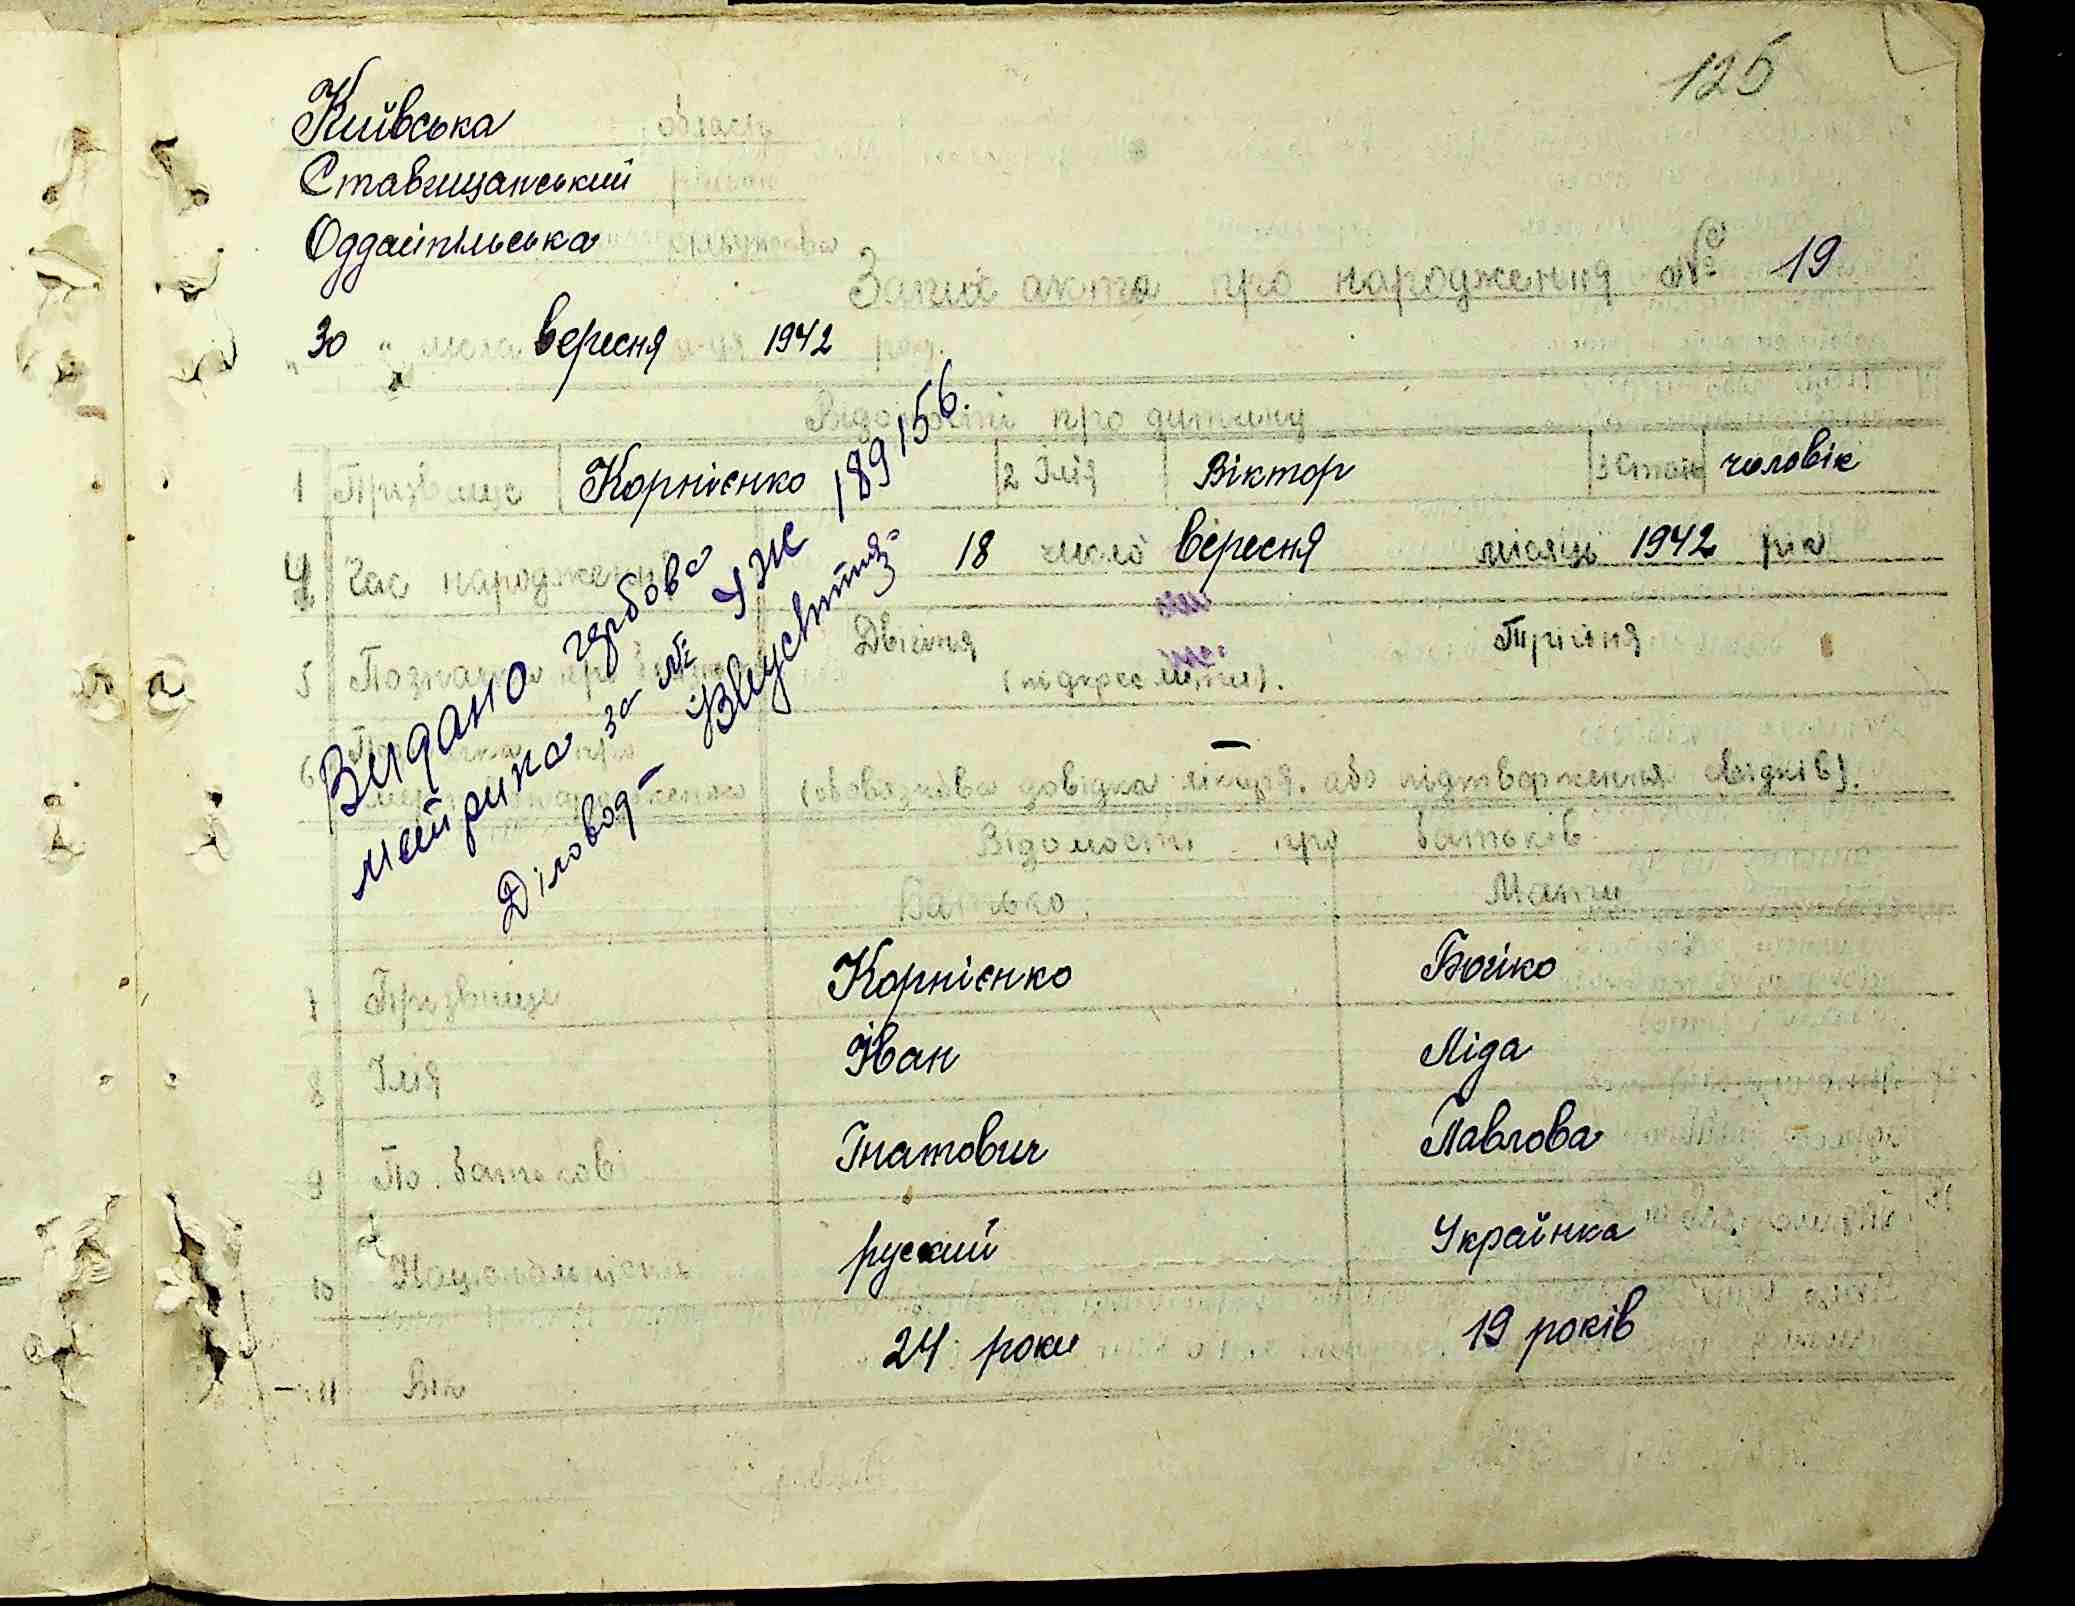 125
Київська область
Ставищанський район
Оддайпільська сільуправа
Запис акта про народження № 19
"30" числа вересня м-ця 1942 року.
Відомості про дитину
1 Призвище Корнієнко 2 Імя Віктор 3 Стать чоловік
4 Час народження 18 число вересня місяць 1942 рік
5 Позначка про Двійня Трійня
(підкреслити).
6 Позначка про –
мертвонародженого (обовязкова довідка лікаря, або підтвердження свідків).
Видано гербова
метрика за № УЖ 189156.
Діловод-
Відомості про батьків
Батько Мати
7 Призвище Корнієнко Бойко
8 Імя Іван Ліда
9 По батькові Гнатович Павлова
10 Національність руский Українка
11 Вік 24 роки 19 років